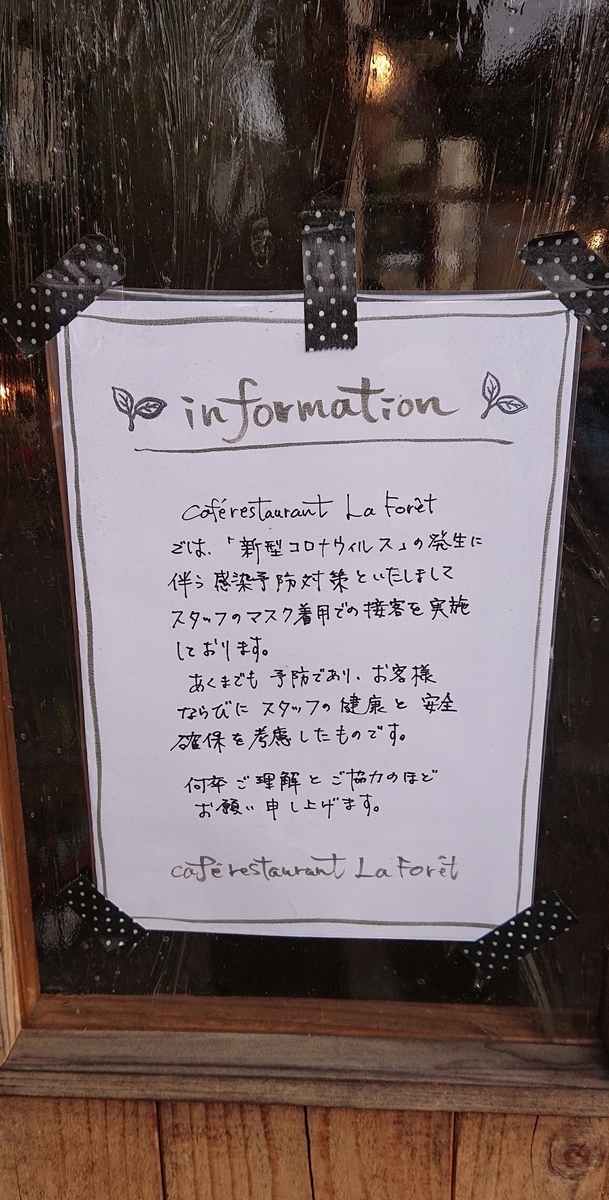 information
café restaurant La Forêt
では、「新型コロナウィルス」の発生に
伴う感染予防対策といたしまして
スタッフのマスク着用での接客を実施
しております。
あくまでも予防であり、お客様
ならびにスタッフの健康と安全
確保を考慮したものです。
何卒ご理解とご協力のほど
お願い申し上げます。
café restaurant La Forêt